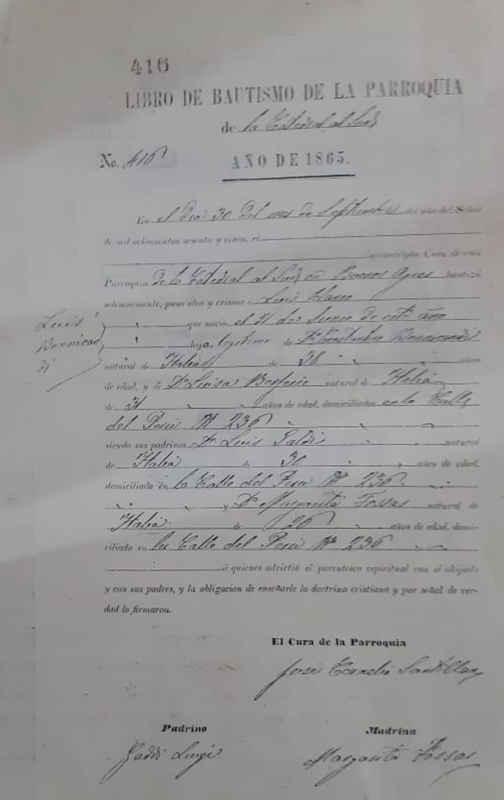 416
LIBRO DE BAUTISMO DE LA PARROQUIA
de la Catedral al Sud
No. 416 AÑO DE 1865.
En el dia 30 del mes de Septiembre del año del Señor
de mil ochocientos sesenta y cinco, el
infrascripto Cura de esta
Parroquia de la Catedral al Sud en Buenos Ayres bautizó
solemnemente, puso oleo y crisma a Luis
que nació el 21 de Junio de este año
Luis
hijo legitimo de Dn
natural de Italia de 38 años
de edad, y de Da Luisa natural de Italia
de 31 años de edad, domiciliados en la Calle
del Perú No 236
siendo sus padrinos Dn Luis natural
de Italia de 30 años de edad,
domiciliado en la Calle del Perú No 236
y Da Margarita Fossas natural de
Italia de 26 años de edad, domi-
ciliado en la Calle del Perú No 236
á quienes advirtió el parentesco espiritual con el ahijado
y con sus padres, y la obligacion de enseñarle la doctrina cristiana y por señal de ver-
dad lo firmaron.
El Cura de la Parroquia
José Santillan
Padrino Madrina
Luigi Margarita Fossas